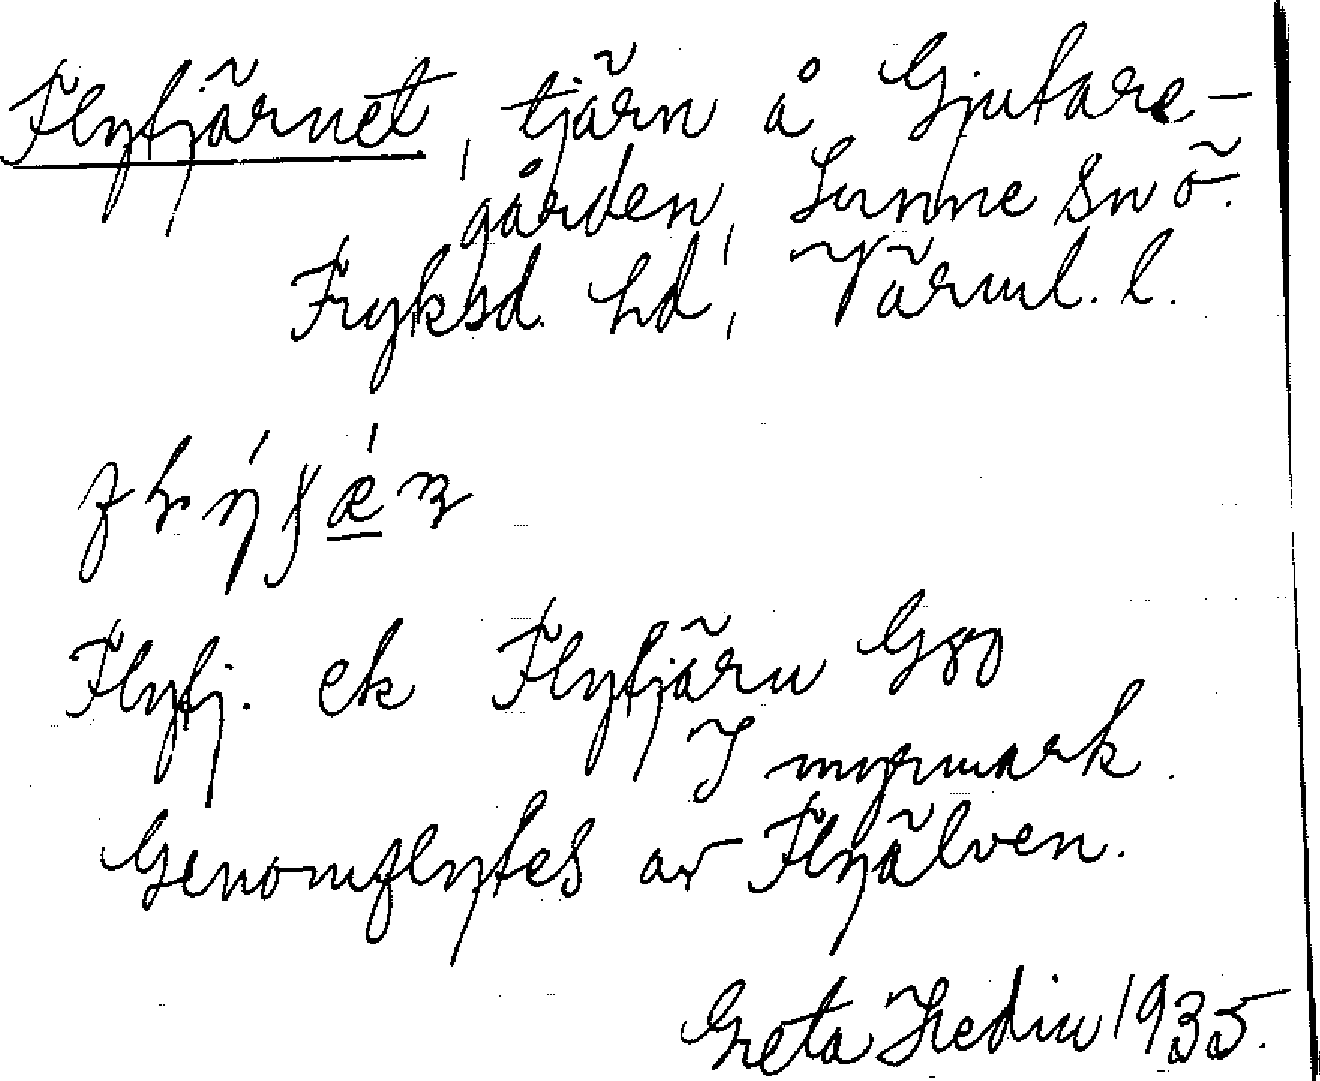 Flytjärnet, tjärn å Gjutare-
gården, Sunne sn ö.
Fryksd. hd, Värml. l.
Flytj. ek Flytjärn G80
I myrmark.
Genomflytes av Flyälven.
Greta Hedin 1935.